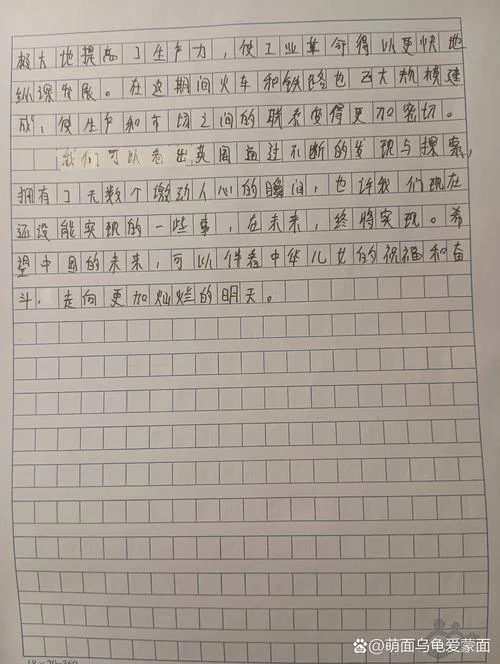 极大地提高了生产力，使工业革命得以更快地
纵深发展。在这期间火车和铁路也已大规模建
成，使生产和市场之间的联系变得更加密切。
我们可以看出英国通过不断的发现与探索，
拥有了无数个激动人心的瞬间，也许我们现在
还没能实现的一些事，在未来，终将实现。希
望中国的未来，可以伴着中华儿女的祝福和奋
斗，走向更加灿烂的明天。
18×20=360
@萌面乌龟爱蒙面